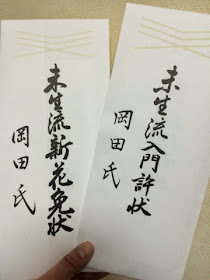 未生流入門許状
岡田氏
未生流新花免状
岡田氏